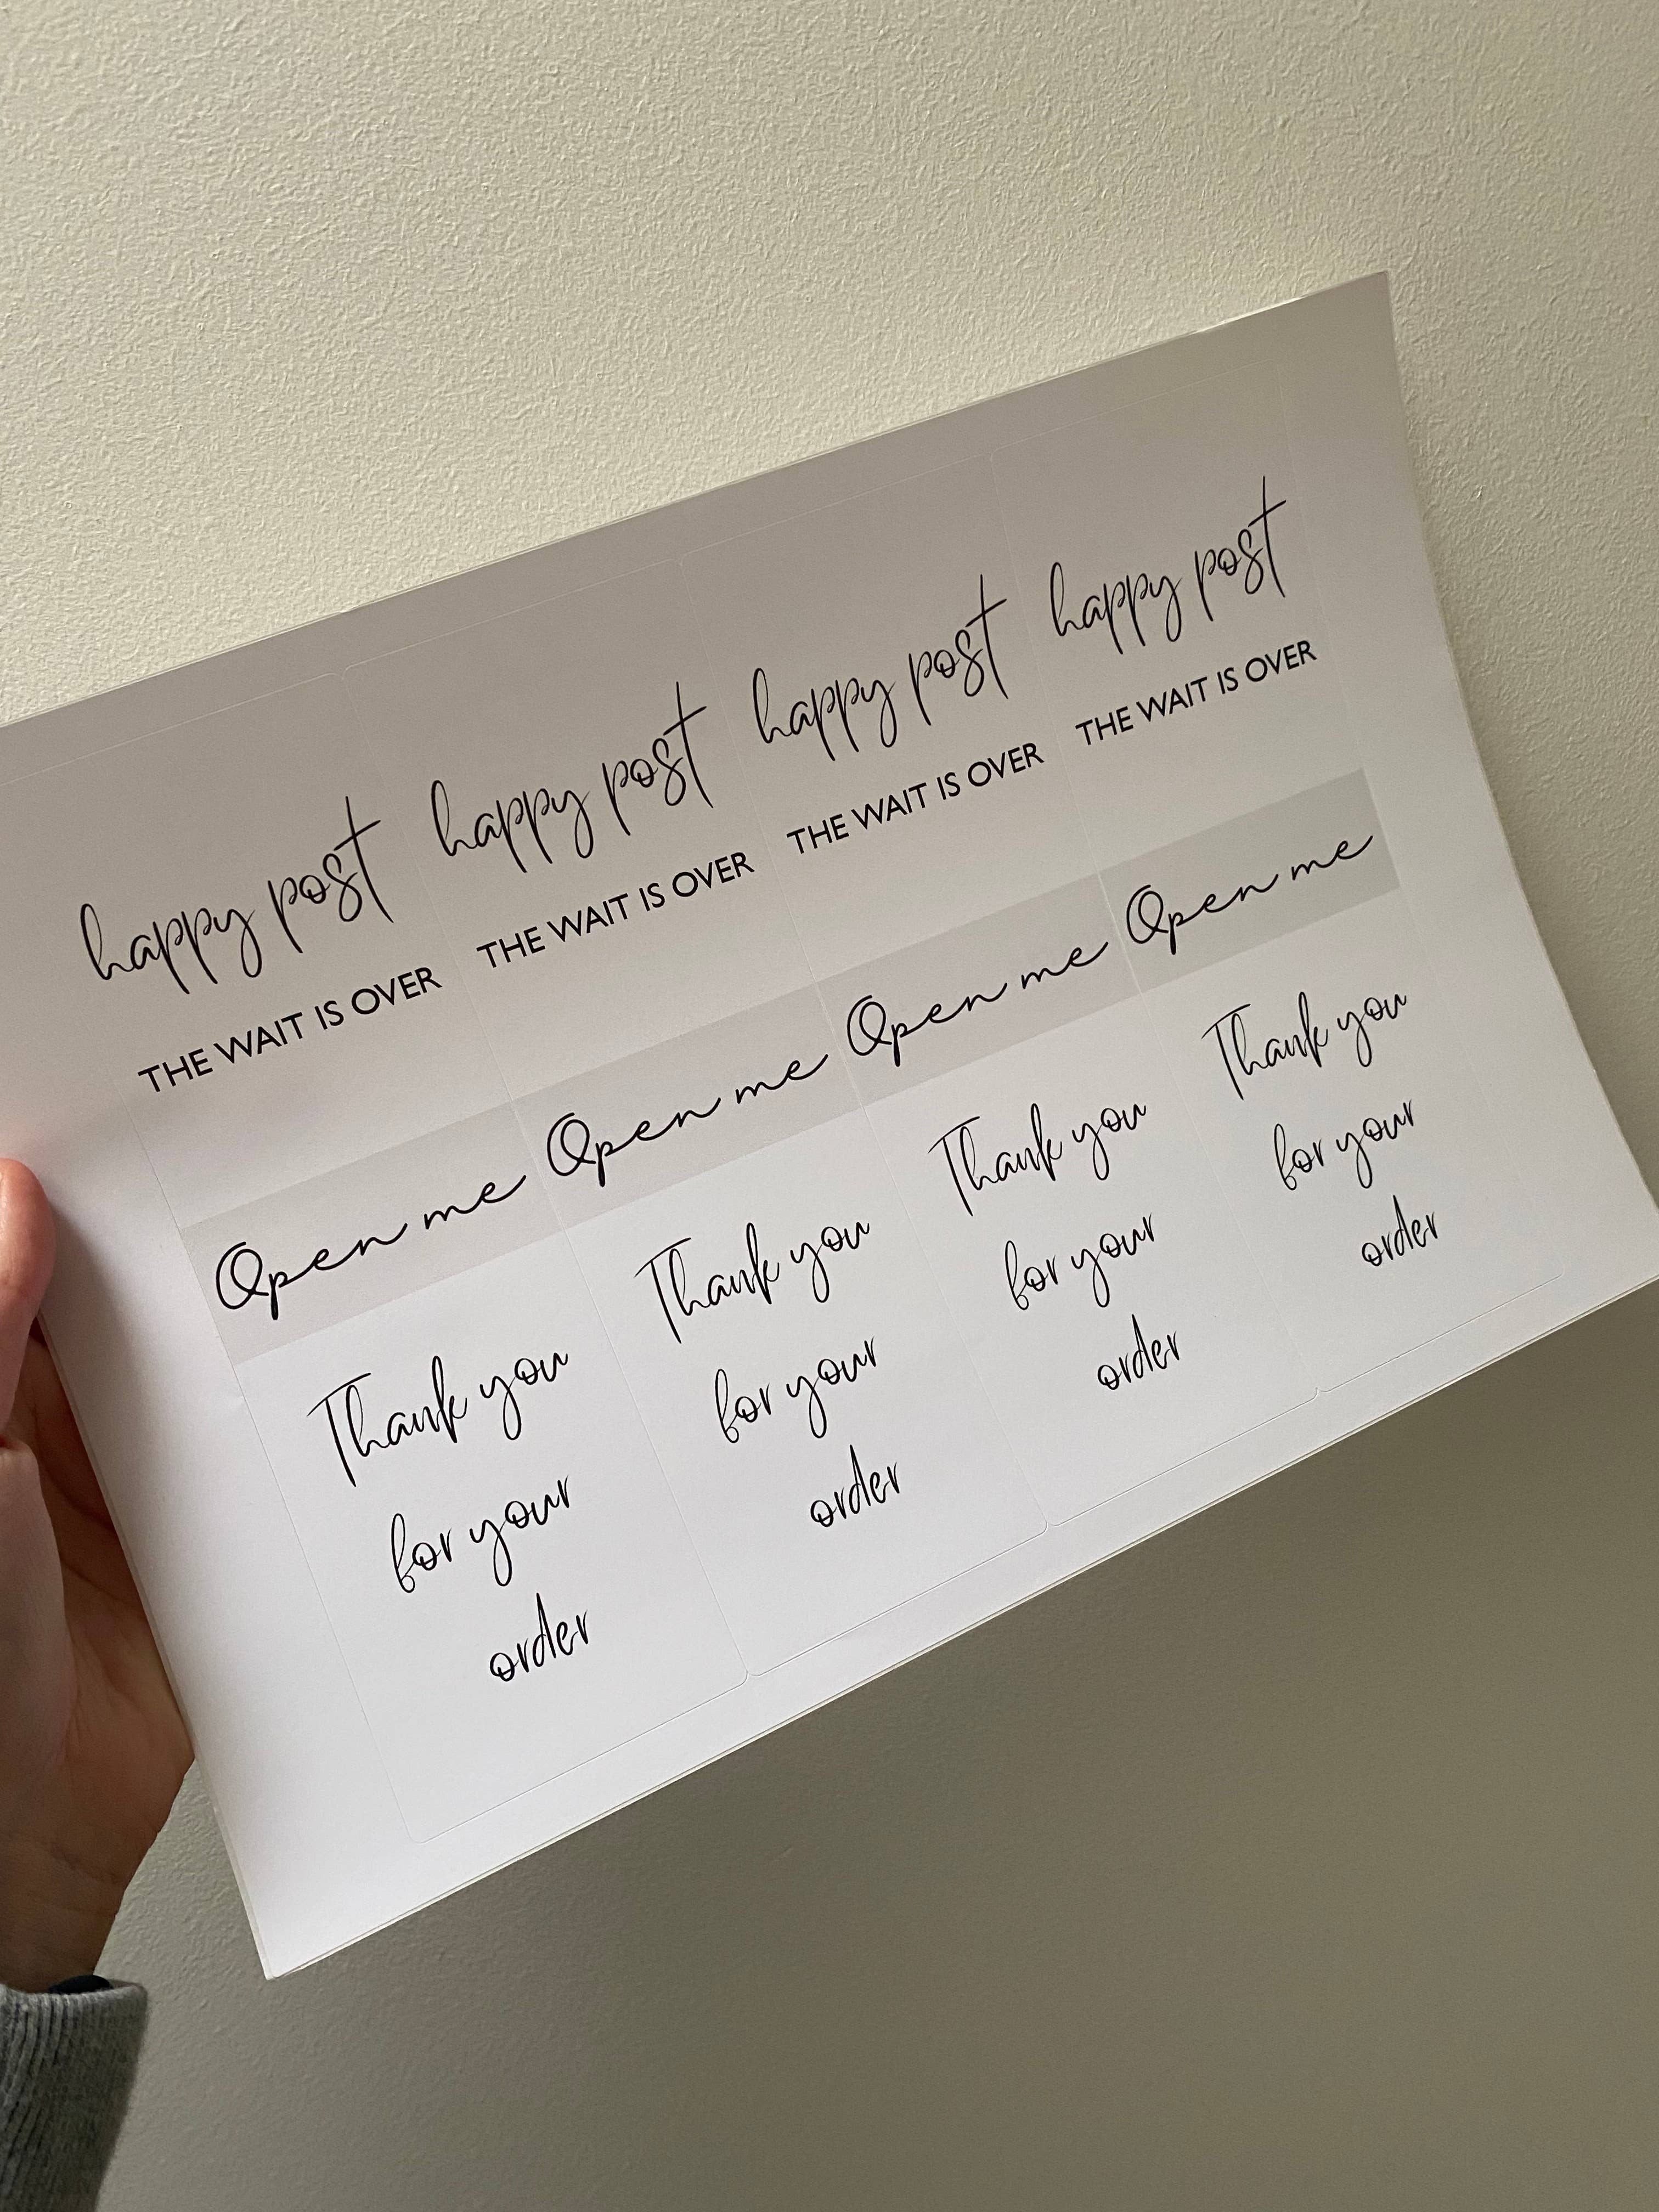 happy post
THE WAIT IS OVER
Open me
Thank you
for your
order
happy post
THE WAIT IS OVER
Open me
Thank you
for your
order
happy post
THE WAIT IS OVER
Open me
Thank you
for your
order
happy post
THE WAIT IS OVER
Open me
Thank you
for your
order